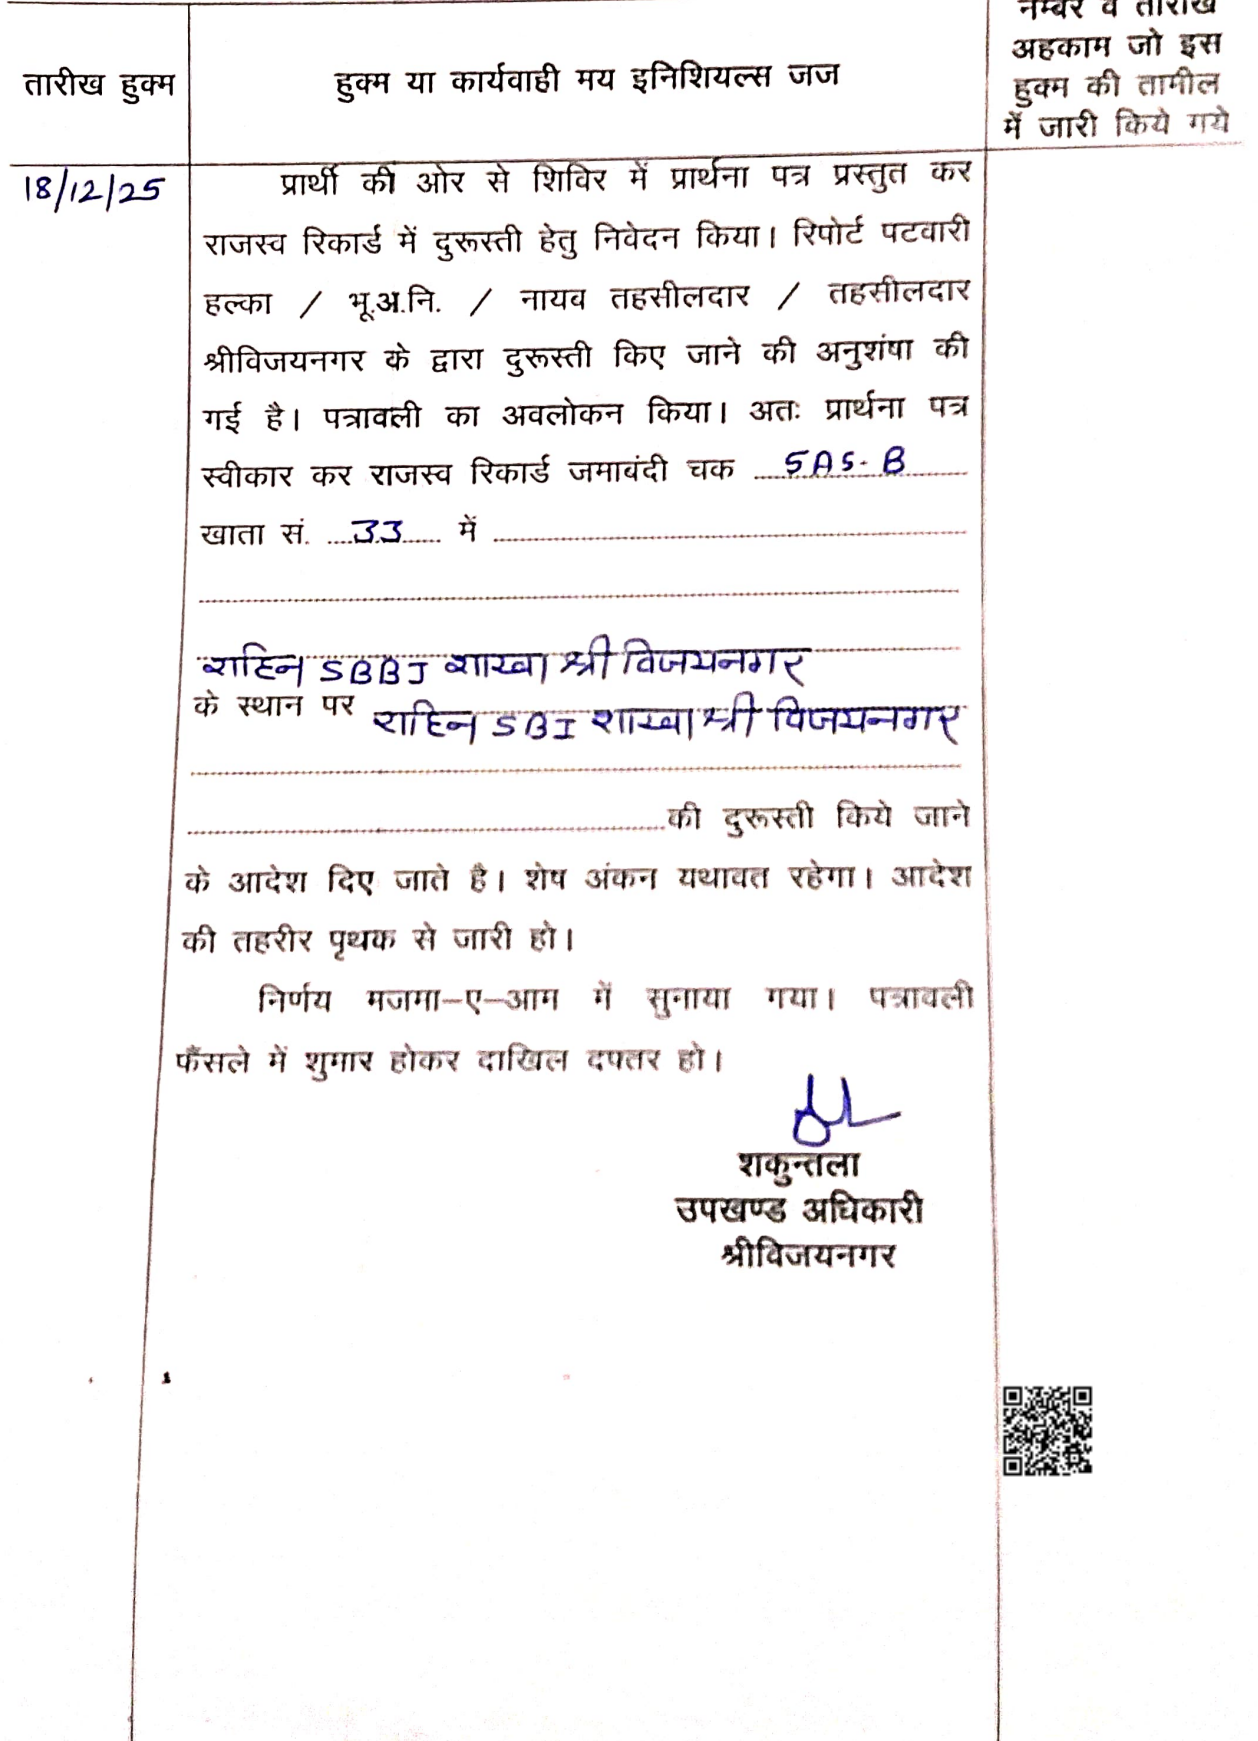 नम्बर व तारीख
अहकाम जो इस
तारीख हुक्म हुक्म या कार्यवाही मय इनिशियल्स जज हुक्म की तामील
में जारी किये गये
18/12/25 प्रार्थी की ओर से शिविर में प्रार्थना पत्र प्रस्तुत कर
राजस्व रिकार्ड में दुरूस्ती हेतु निवेदन किया। रिपोर्ट पटवारी
हल्का / भू.अ.नि. / नायव तहसीलदार / तहसीलदार
श्रीविजयनगर के द्वारा दुरूस्ती किए जाने की अनुशंषा की
गई है। पत्रावली का अवलोकन किया। अतः प्रार्थना पत्र
स्वीकार कर राजस्व रिकार्ड जमाबंदी चक 5AS-B
खाता सं. 33 में
राहिन SBBJ शाखा श्री विजयनगर
के स्थान पर राहिन SBI शाखा श्री विजयनगर
की दुरूस्ती किये जाने
के आदेश दिए जाते है। शेष अंकन यथावत रहेगा। आदेश
की तहरीर पृथक से जारी हो।
निर्णय मजमा-ए-आम में सुनाया गया। पत्रावली
फैंसले में शुमार होकर दाखिल दफ्तर हो।
शकुन्तला
उपखण्ड अधिकारी
श्रीविजयनगर